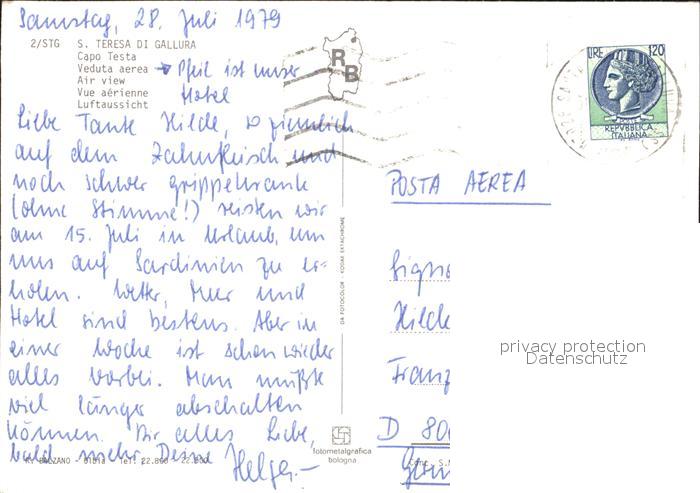 Samstag, 28. Juli 1979
2/STG S. TERESA DI GALLURA
Capo Testa
Veduta aerea → Pfeil ist unser
Air view
Hotel
Vue aérienne
Luftaussicht
RB
LIRE 120
REPVBBLICA
ITALIANA
Liebe Tante Hilde, so ziemlich
auf dem Zahnfleisch und
noch schwer grippekrank
(ohne Stimme!) reisten wir
am 15. Juli in Urlaub, um
uns auf Sardinien zu er-
holen. Wetter, Meer und
Hotel sind bestens. Aber in
einer Woche ist schon wieder
alles vorbei. Man müßte
viel länger abschalten
können. Dir alles Liebe,
bald mehr, Deine Helga.—
DA FOTOCOLOR - KODAK EKTACHROME
fotometalgrafica
bologna
POSTA AEREA
Signo
Hilde
Franz
D 800
Germ
privacy protection
Datenschutz